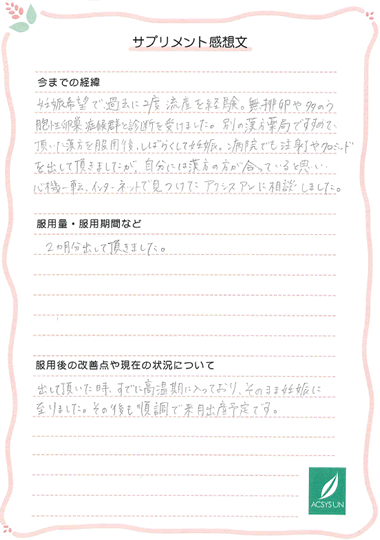 サプリメント感想文
今までの経緯
妊娠希望で過去に2度流産を経験。無排卵や多のう
胞性卵巣症候群と診断を受けました。別の漢方薬局ですすめて
頂いた漢方を服用後、しばらくして妊娠。病院でも注射やクロミッド
を出して頂きましたが、自分には漢方の方が合っていると思い
心機一転、インターネットで見つけたアクシスアンに相談しました。
服用量・服用期間など
2カ月分出して頂きました。
服用後の改善点や現在の状況について
出して頂いた時、すでに高温期に入っており、そのまま妊娠に
至りました。その後も順調で来月出産予定です。
ACSYSUN